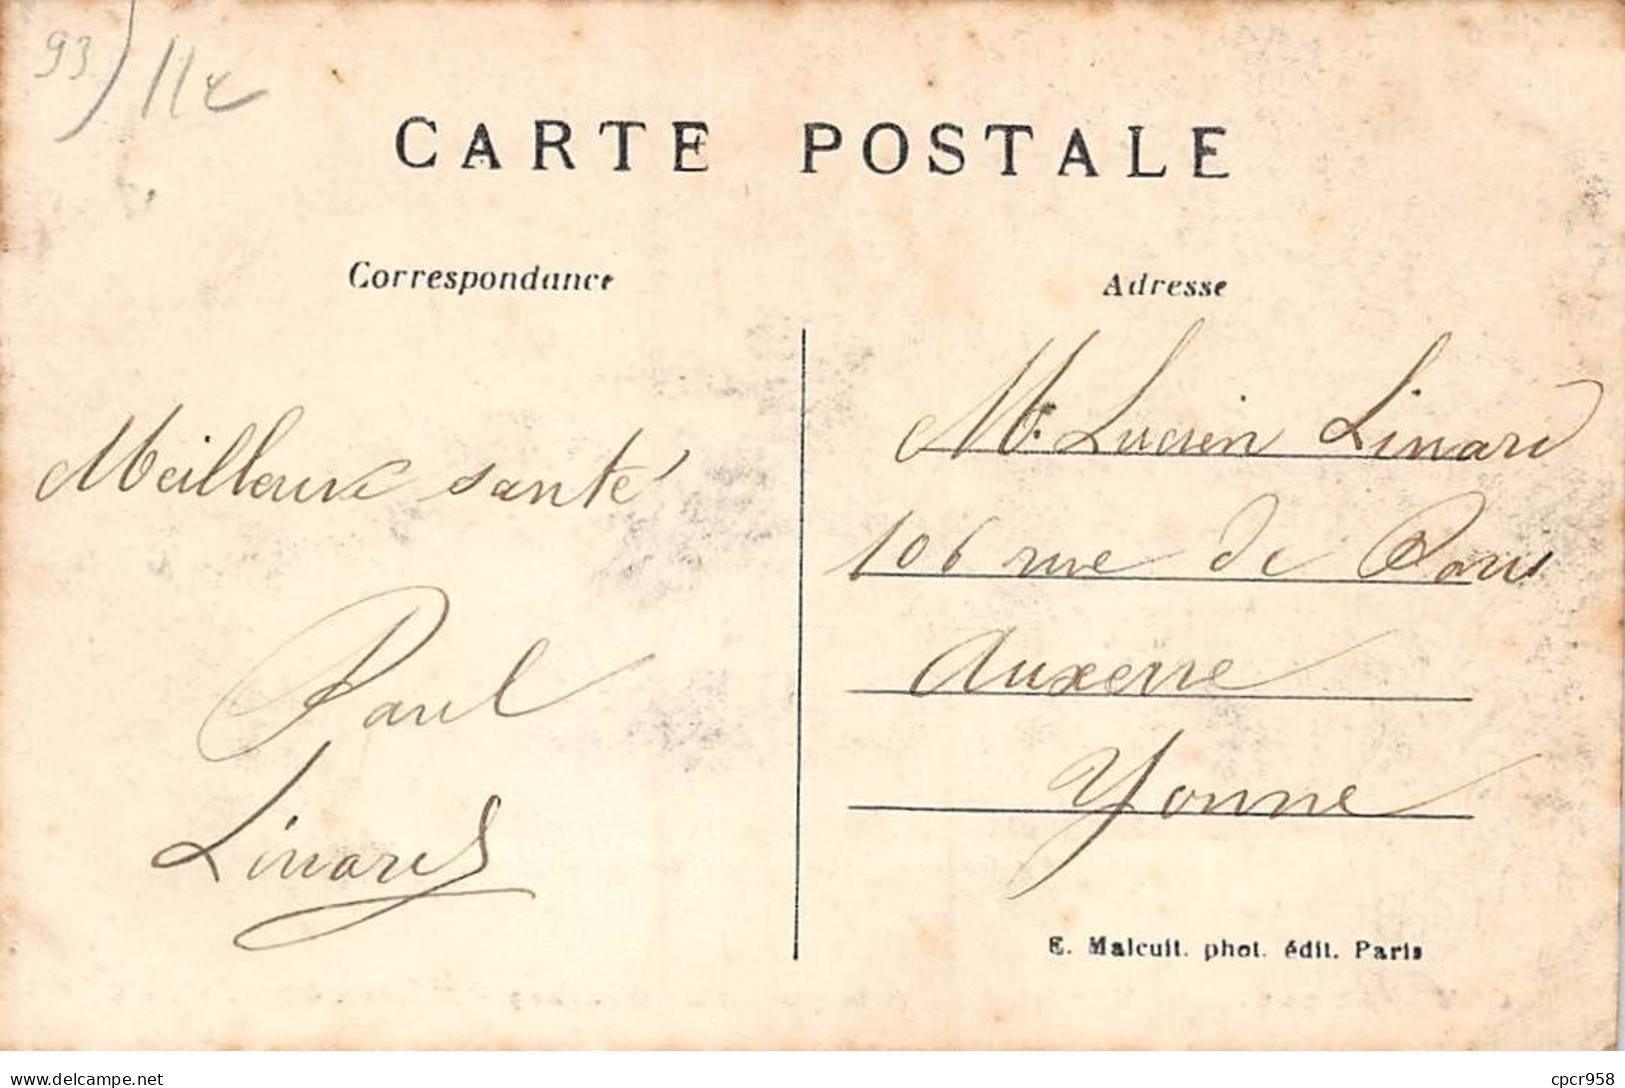 93
11€
CARTE POSTALE
Correspondance
Adresse
Meilleure santé
Paul
Linard
Mr. Lucien Linard
106 rue de Paris
Auxerre
Yonne
E. Malcuit. phot. édit. Paris
delcampe.net
cpcr958